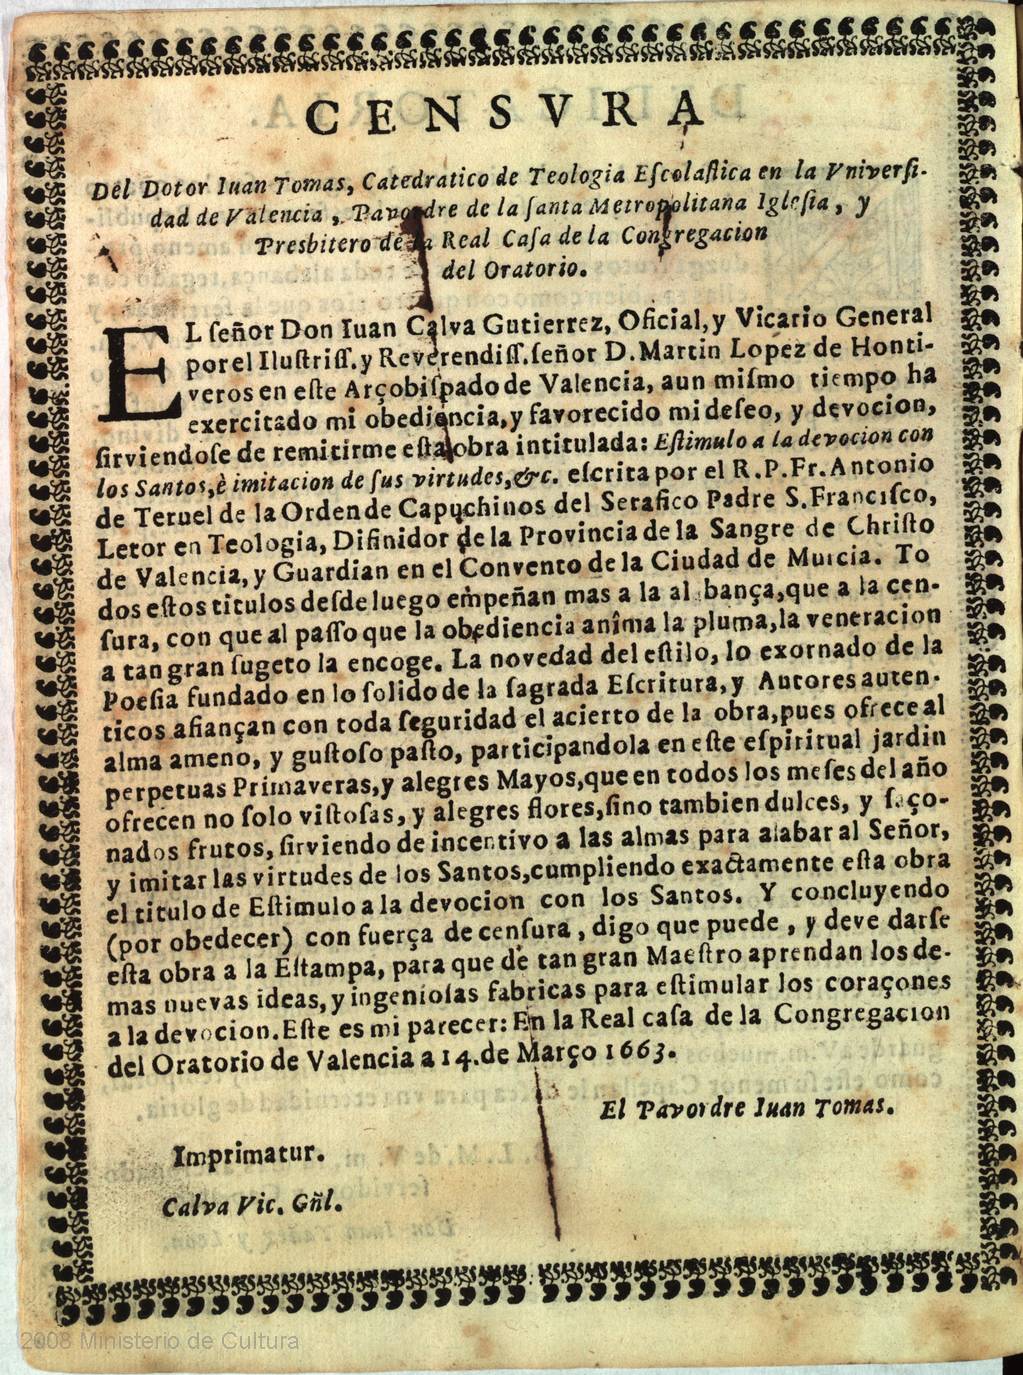 CENSVRA
Del Dotor Iuan Tomas, Catedratico de Teologia Eſcolaſtica en la Vniverſi-
dad de Valencia, Pavordre de la ſanta Metropolitana Igleſia, y
Presbitero de la Real Caſa de la Congregacion
del Oratorio.
EL ſeñor Don Iuan Calva Gutierrez, Oficial, y Vicario General
por el Iluſtriſſ. y Reverendiſſ. ſeñor D. Martin Lopez de Honti-
veros en eſte Arçobiſpado de Valencia, a un miſmo tiempo ha
exercitado mi obediencia, y favorecido mi deſeo, y devocion,
ſirviendoſe de remitirme eſta obra intitulada: Eſtimulo a la devocion con
los Santos, è imitacion de ſus virtudes, &c. eſcrita por el R.P.Fr. Antonio
de Teruel de la Orden de Capuchinos del Serafico Padre S. Franciſco,
Letor en Teologia, Difinidor de la Provincia de la Sangre de Chriſto
de Valencia, y Guardian en el Convento de la Ciudad de Murcia. To
dos eſtos titulos deſde luego empeñan mas a la alabança, que a la cen-
ſura, con que al paſſo que la obediencia anîma la pluma, la veneracion
a tan gran ſugeto la encoge. La novedad del eſtilo, lo exornado de la
Poeſia fundado en lo ſolido de la ſagrada Eſcritura, y Autores auten-
ticos afiançan con toda ſeguridad el acierto de la obra, pues ofrece al
alma ameno, y guſtoſo paſto, participandola en eſte eſpiritual jardin
perpetuas Primaveras, y alegres Mayos, que en todos los meſes del año
ofrecen no ſolo viſtoſas, y alegres flores, ſino tambien dulces, y ſaço-
nados frutos, ſirviendo de incentivo a las almas para alabar al Señor,
y imitar las virtudes de los Santos, cumpliendo exactamente eſta obra
el titulo de Eſtimulo a la devocion con los Santos. Y concluyendo
(por obedecer) con fuerça de cenſura, digo que puede, y deve darſe
eſta obra a la Eſtampa, para que de tan gran Maeſtro aprendan los de-
mas nuevas ideas, y ingenioſas fabricas para eſtimular los coraçones
a la devocion. Eſte es mi parecer: En la Real caſa de la Congregacion
del Oratorio de Valencia a 14. de Março 1663.
El Pavordre Iuan Tomas.
Imprimatur.
Calva Vic. Gñl.
2008 Ministerio de Cultura